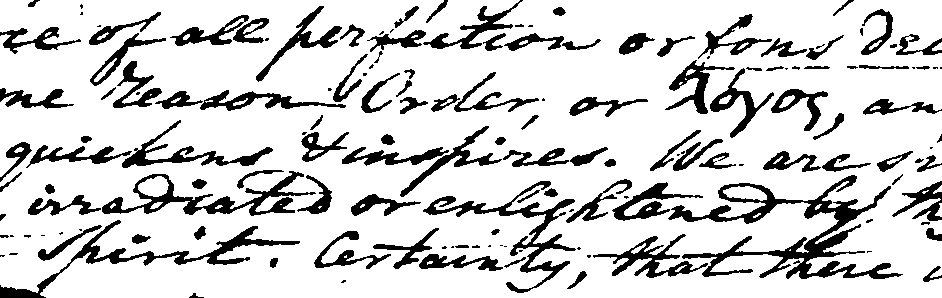 ce of all perfection or fons dei
me Reason Order, or λόγος, an
quickens & inspires. We are sp
irradiated or enlightened by th
spirit. Certainty, that there i